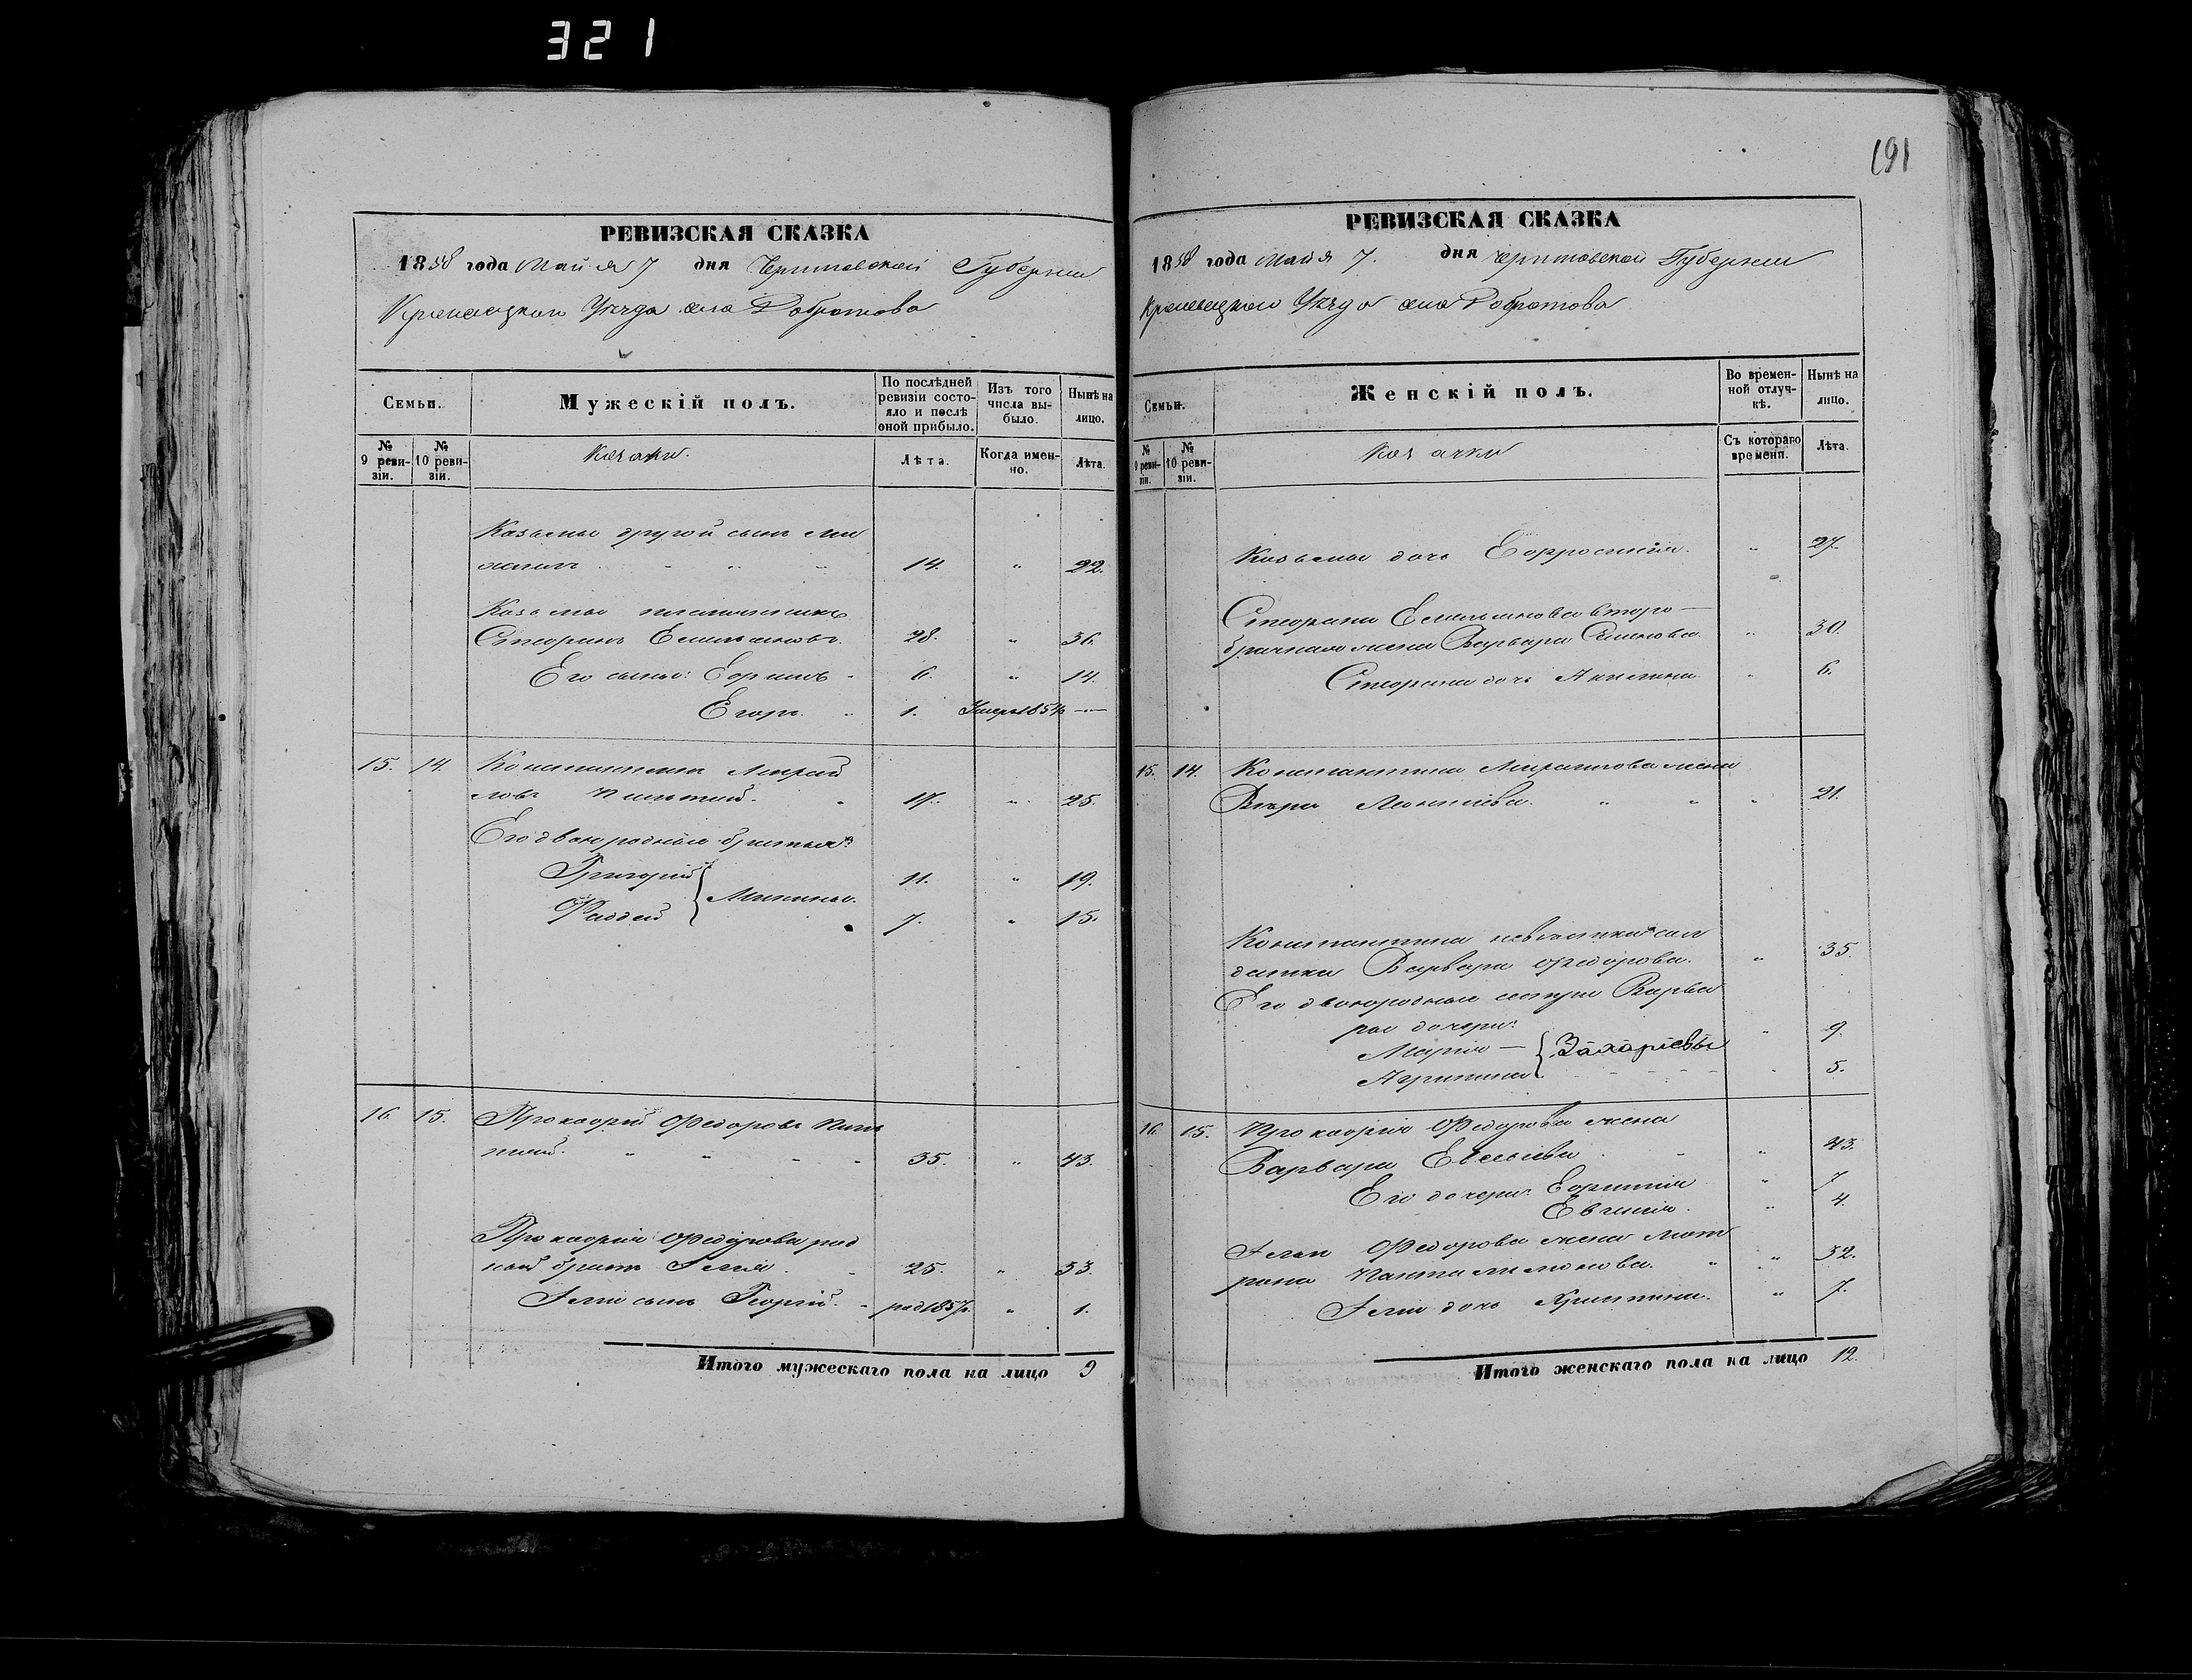 321
191
РЕВИЗСКАЯ СКАЗКА
1858 года Майя 7 дня Черниговской Губернии
Кролевецкого Уезда села Добротова
Семьи.
Мужескій полъ.
По послѣдней ревизіи состояло и послѣ оной прибыло.
Изъ того числа выбыло.
Нынѣ на лицо.
№ 9 ревизіи.
№ 10 ревизіи.
Козаки.
Лѣта.
Когда именно.
Лѣта.
Козьмы другой сынъ
14. " 22.
Козьмы племянникъ
Стефанъ Емельяновъ. 28. " 36.
Его сыны: Ефимъ 6. " 14.
Егоръ. " 1. Умеръ 1854 —
15. 14. Константинъ Мирай
ловъ 17. " 25.
Его двоюродные братья:
Григорій 11. " 19.
Фаддей } Минины. 7. " 15.
16. 15. Прокофій Федоровъ
35. " 43.
Прокофія Федорова род
ной братъ Гелій. 25. " 33.
Гелія сынъ Георгій. род 1857. " 1.
Итого мужескаго пола на лицо 9
РЕВИЗСКАЯ СКАЗКА
1858 года Майя 7. дня Черниговской Губернии
Кролевецкого Уезда села Добротова
Семьи.
Женскій полъ.
Во временной отлучкѣ.
Нынѣ на лицо.
№ 9 ревизіи.
№ 10 ревизіи.
Козачки
Съ котораго времени.
Лѣта.
Козьмы дочь Ефросинія. " 27.
Стефана Емельянова второ—
брачная жена Варвара Семенова. " 30.
Стефана дочь Акилина. " 6.
15. 14. Константина жена
Вѣра Леонтіева. " " " 21.
Константина невѣстка сол
датка Варвара Федорова. " 35.
Его двоюродные сестры Варва
ры дочери:
Марія — " 9.
Агрипина } Захаріевы " 5.
16. 15. Прокофія Федорова жена
Варвара Евсѣіева " 43.
Его дочери: Ефимія " 7
Евгенія. " 4.
Гелія Федорова жена Мот
рона Пантелимонова. " " 32.
Гелія дочь Христина. " 7.
Итого женскаго пола на лицо 12.